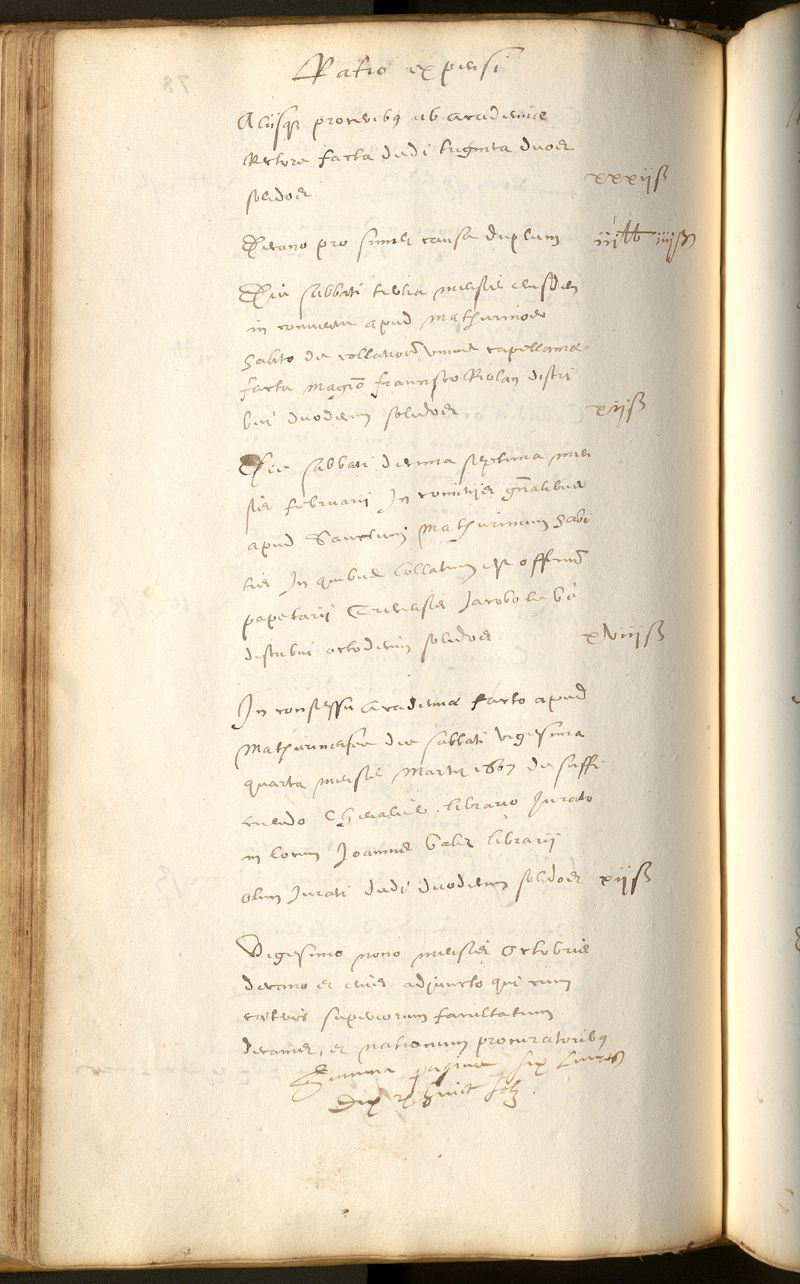 Ratio expensi
Aliisque procerib9 ab academiæ
Rectore facta dedi triginta duos
solidos xxxijß
Decano pro simili causa duplum iijlb iiijß
Die sabbati tertia mensis eiusdem
in conventu apud mathurinos
habito de collatione unius capellaniæ
facta magro francisco Rolan distri
bui duodecim solidos xijß
Die sabbati decima septima men
sis februarii In comitijs gnalibus
apud Sanctum Mathurinum habi
tis In quibus Collatum est officium
papetarii Trecensis Jacobo le bé
distribui octodecim solidos xViijß
In consessu Academiæ facto apud
Mathurinenses die sabbati vigesima
quarta mensis Martij 1567 de suffi
ciendo librario Jurato
in locum Joannis librarii
olim Jurati dedi duodecim solidos xijß
Vigesimo nono mensis Octobris
decano et eius adjuncto qui cum
cæteris superiorum facultatum
decanis, et nationum procuratorib9
Summa paginæ six Livres
Dix et huict solz